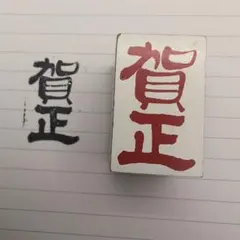 賀正
賀正